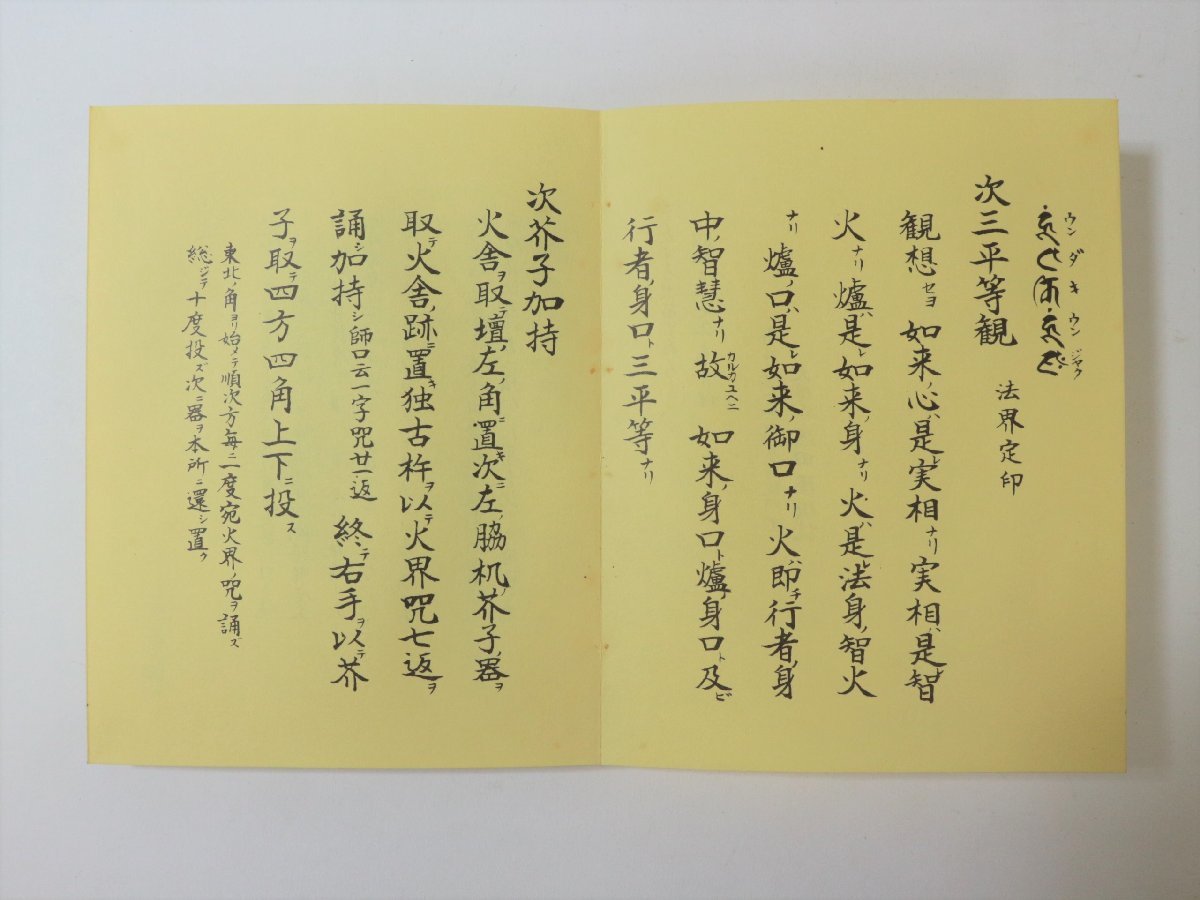 ウン ダ キ ウン ジャク
次三平等観 法界定印
観想セヨ 如来ノ心ハ是レ実相ナリ 実相ハ是レ智
火ナリ 爐ハ是レ如来ノ身ナリ 火ハ是レ法身ノ智火
ナリ 爐ノ口ハ是レ如来ノ御口ナリ 火ハ即チ行者ノ身
中ノ智慧ナリ 故カルガユヘニ 如来ノ身口ト爐ノ身口ト及ビ
行者ノ身口ト三平等ナリ
次芥子加持
火舎ヲ取テ壇ノ左ノ角ニ置キ次ニ左ノ脇机ノ芥子ノ器ヲ
取テ火舎ノ跡ニ置キ独古杵ヲ以テ火界呪七返ヲ
誦シ加持シ 師口云一字呪廿一返 終テ右手ヲ以テ芥
子ヲ取テ四方四角上下ニ投ス
東北ノ角ヨリ始メテ順次方毎ニ一度宛火界ノ呪ヲ誦ズ
総ジテ十度投ズ次ニ器ヲ本所ニ還シ置ク